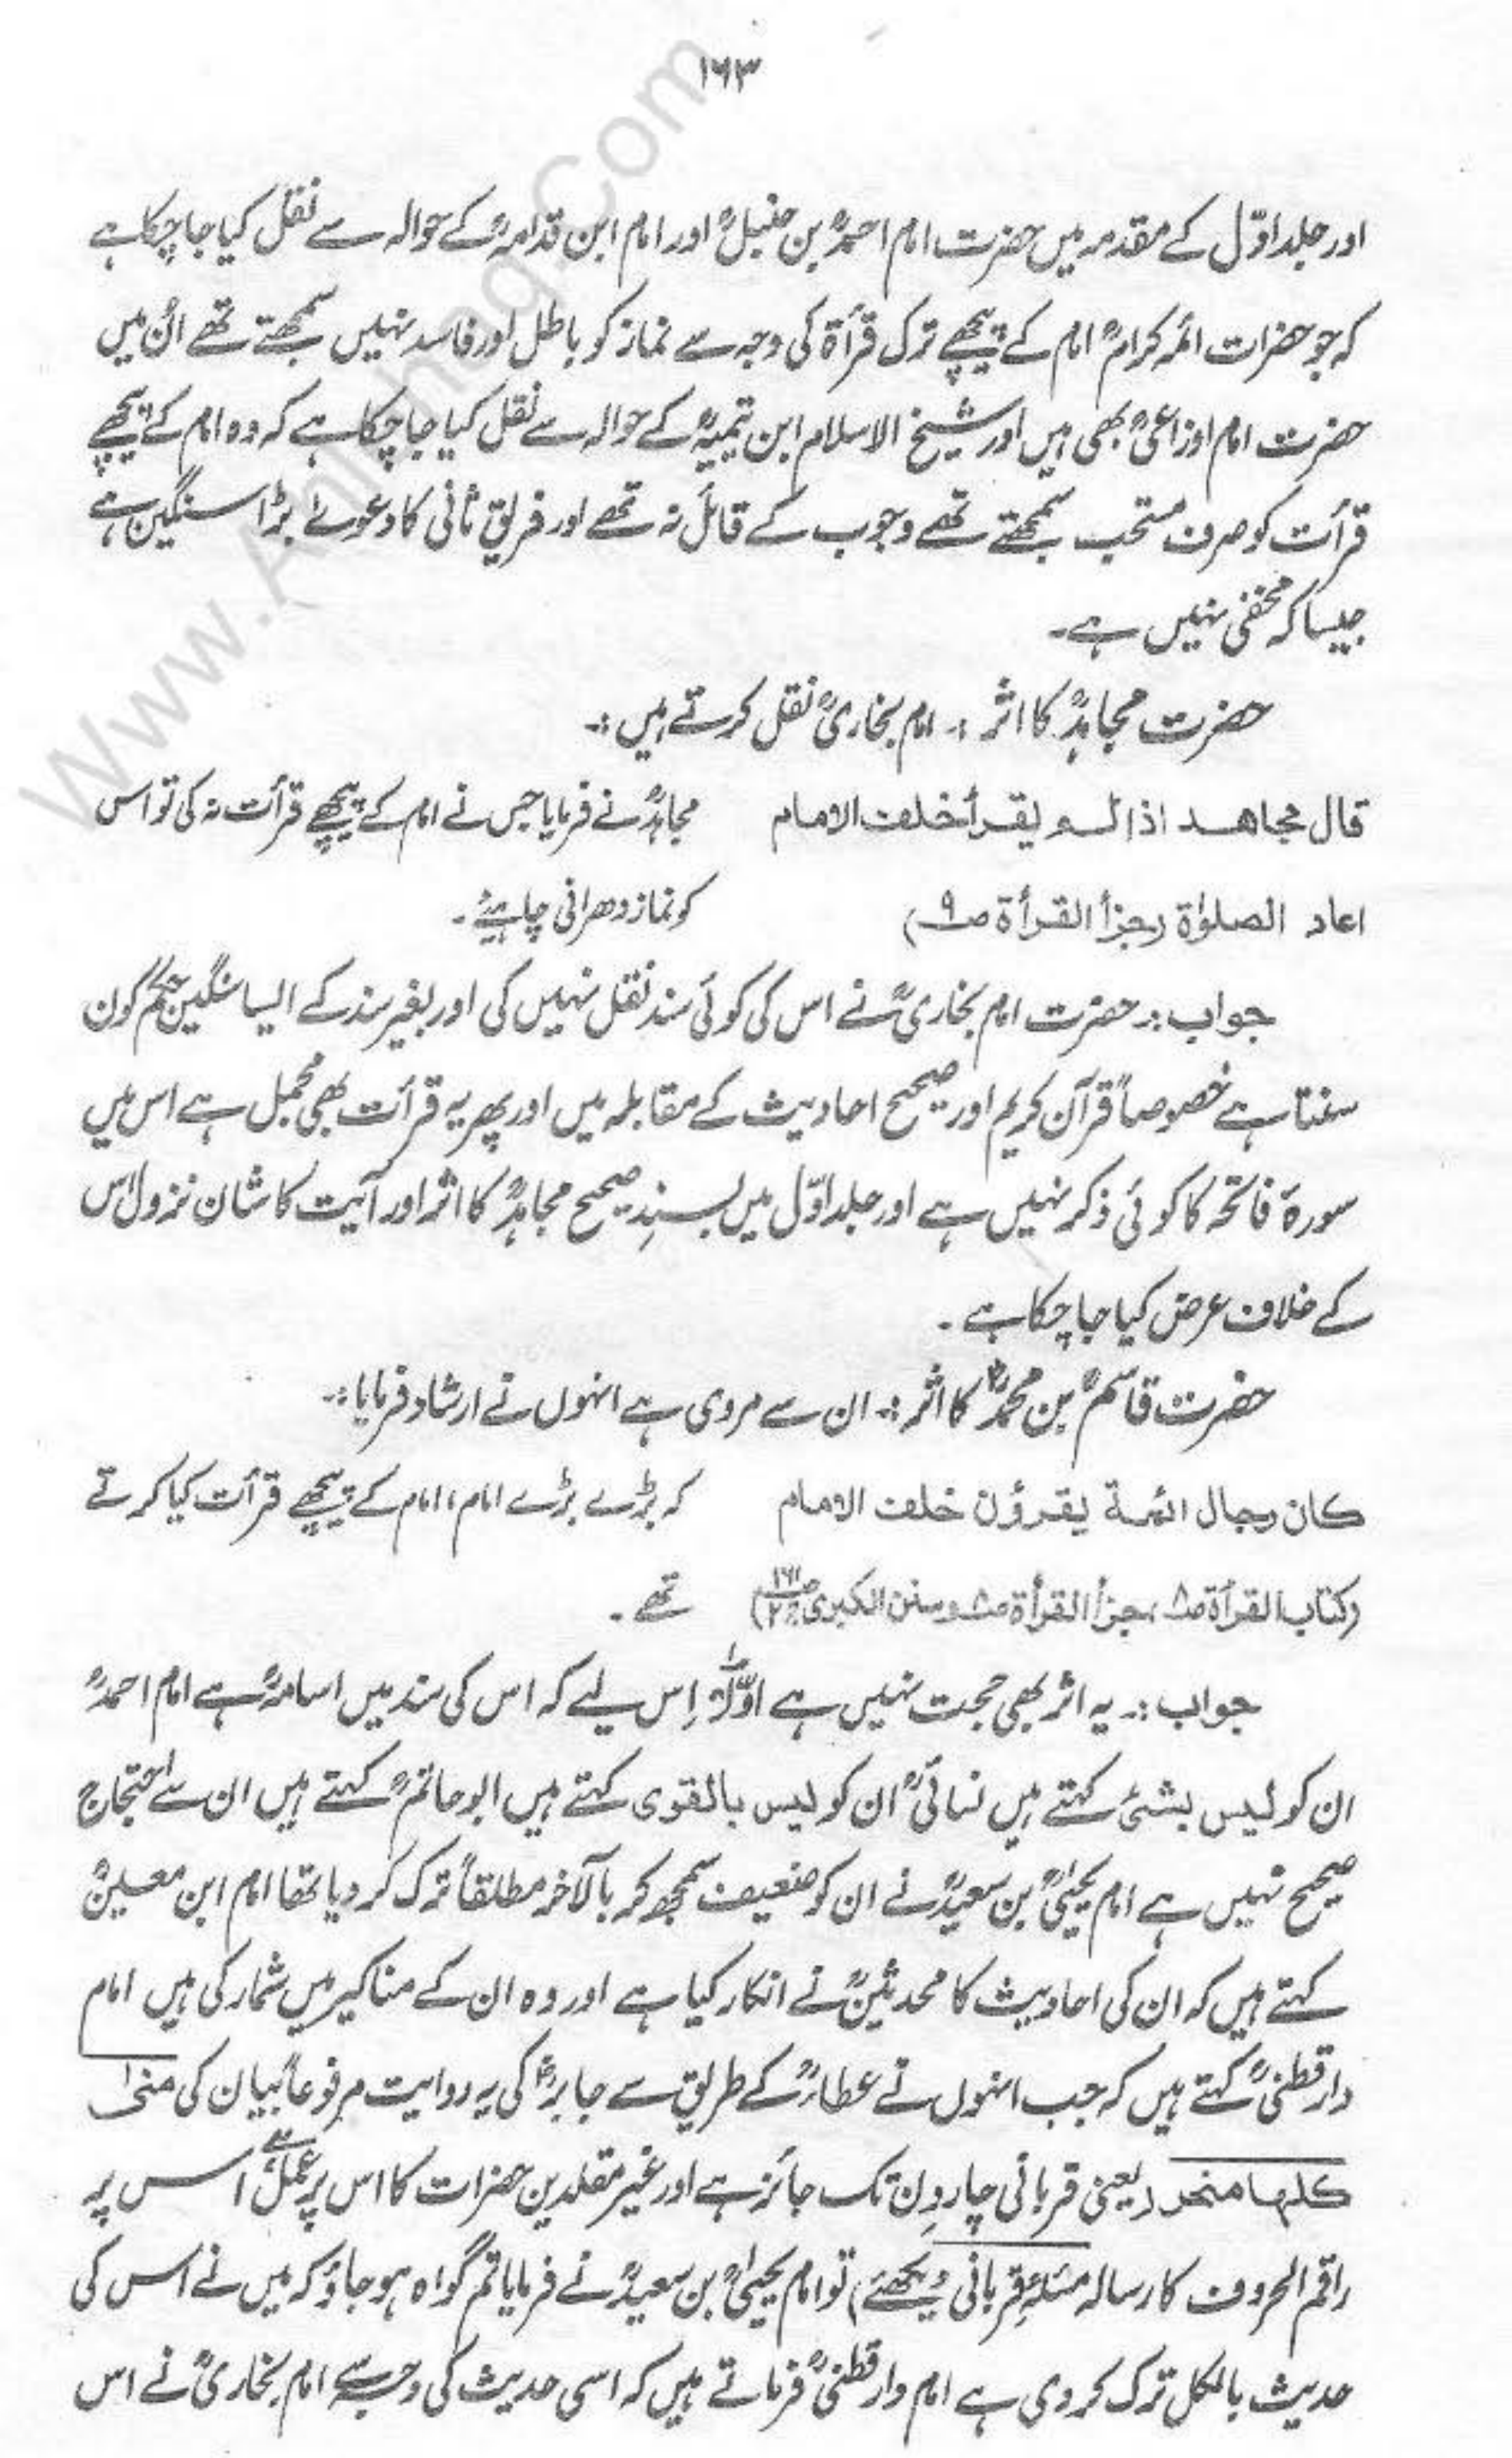 ۱۶۳
اور جلد اوّل کے مقدمہ میں حضرت امام احمدؒ بن حنبلؒ اور امام ابن قدامہؒ کے حوالہ سے نقل کیا جا چکا ہے
کہ جو حضرات ائمہ کرامؒ امام کے پیچھے ترک قرأۃ کی وجہ سے نماز کو باطل اور فاسد نہیں سمجھتے تھے اُن میں
حضرت امام اوزاعیؒ بھی ہیں اور شیخ الاسلام ابن تیمیہؒ کے حوالہ سے نقل کیا جا چکا ہے کہ وہ امام کے پیچھے
قرأت کو صرف مستحب سمجھتے تھے وجوب کے قائل نہ تھے اور فریق ثانی کا دعویٰ بڑا سنگین ہے
جیسا کہ مخفی نہیں ہے۔
حضرت مجاہدؒ کا اثر :۔ امام بخاریؒ نقل کرتے ہیں :۔
قال مجاهد اذا لم يقرأ خلف الامام مجاہدؒ نے فرمایا جس نے امام کے پیچھے قرأت نہ کی تو اس
اعاد الصلوٰة (جزأ القرأة ص۹) کو نماز دھرانی چاہیئے۔
جواب :۔ حضرت امام بخاریؒ نے اس کی کوئی سند نقل نہیں کی اور بغیر سند کے ایسا سنگین حکم کون
سنتا ہے خصوصاً قرآن کریم اور صحیح احادیث کے مقابلہ میں اور پھر یہ قرأت بھی مجمل ہے اس میں
سورۃ فاتحہ کا کوئی ذکر نہیں ہے اور جلد اوّل میں بسندِ صحیح مجاہدؒ کا اثر اور آیت کا شان نزول اس
کے خلاف عرض کیا جا چکا ہے۔
حضرت قاسمؒ بن محمدؒ کا اثر :۔ ان سے مروی ہے انہوں نے ارشاد فرمایا :۔
كان رجال ائمة يقرؤن خلف الامام کہ بڑے بڑے امام، امام کے پیچھے قرأت کیا کرتے
(كتاب القرأة ، جزأ القرأة وسنن الكبرى ج۲ ص۱۶۱) تھے۔
جواب :۔ یہ اثر بھی حجت نہیں ہے اوّلاً اِس لیے کہ اس کی سند میں اسامہؒ ہے امام احمدؒ
ان کو لیس بشئ کہتے ہیں نسائیؒ ان کو لیس بالقوی کہتے ہیں ابو حاتمؒ کہتے ہیں ان سے احتجاج
صحیح نہیں ہے امام یحییٰؒ بن سعیدؒ نے ان کو ضعیف سمجھ کر بالآخر مطلقاً ترک کر دیا تھا امام ابن معینؒ
کہتے ہیں کہ ان کی احادیث کا محدثینؒ نے انکار کیا ہے اور وہ ان کے مناکیر میں شمار کی ہیں امام
دارقطنیؒ کہتے ہیں کہ جب انہوں نے عطاءؒ کے طریق سے جابرؓ کی یہ روایت مرفوعاً بیان کی منیٰ
كلها منحر (یعنی قربانی چار دِن تک جائز ہے اور غیر مقلدین حضرات کا اس پر عمل ہے، اس پر
راقم الحروف کا رسالہ مسئلہِ قربانی دیکھئے) تو امام یحییٰؒ بن سعیدؒ نے فرمایا تم گواہ ہو جاؤ کہ میں نے اس کی
حدیث بالکل ترک کر دی ہے امام دارقطنیؒ فرماتے ہیں کہ اسی حدیث کی وجہ سے امام بخاریؒ نے اس
www.Ahlehaq.Com